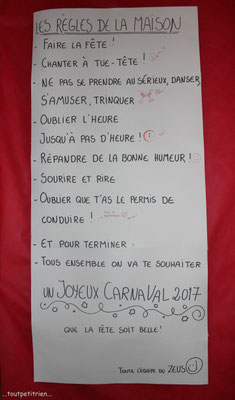 LES RÈGLES DE LA MAISON
- FAIRE LA FÊTE !
- CHANTER À TUE-TÊTE !
- NE PAS SE PRENDRE AU SÉRIEUX, DANSER,
S'AMUSER, TRINQUER
- OUBLIER L'HEURE
JUSQU'À PAS D'HEURE !
- RÉPANDRE DE LA BONNE HUMEUR !
- SOURIRE ET RIRE
- OUBLIER QUE T'AS LE PERMIS DE
CONDUIRE !
- ET POUR TERMINER :
- TOUS ENSEMBLE ON VA TE SOUHAITER
UN JOYEUX CARNAVAL 2017
QUE LA FÊTE SOIT BELLE!
TOUTE L'ÉQUIPE DU ZEUS
...toutpetitrien...